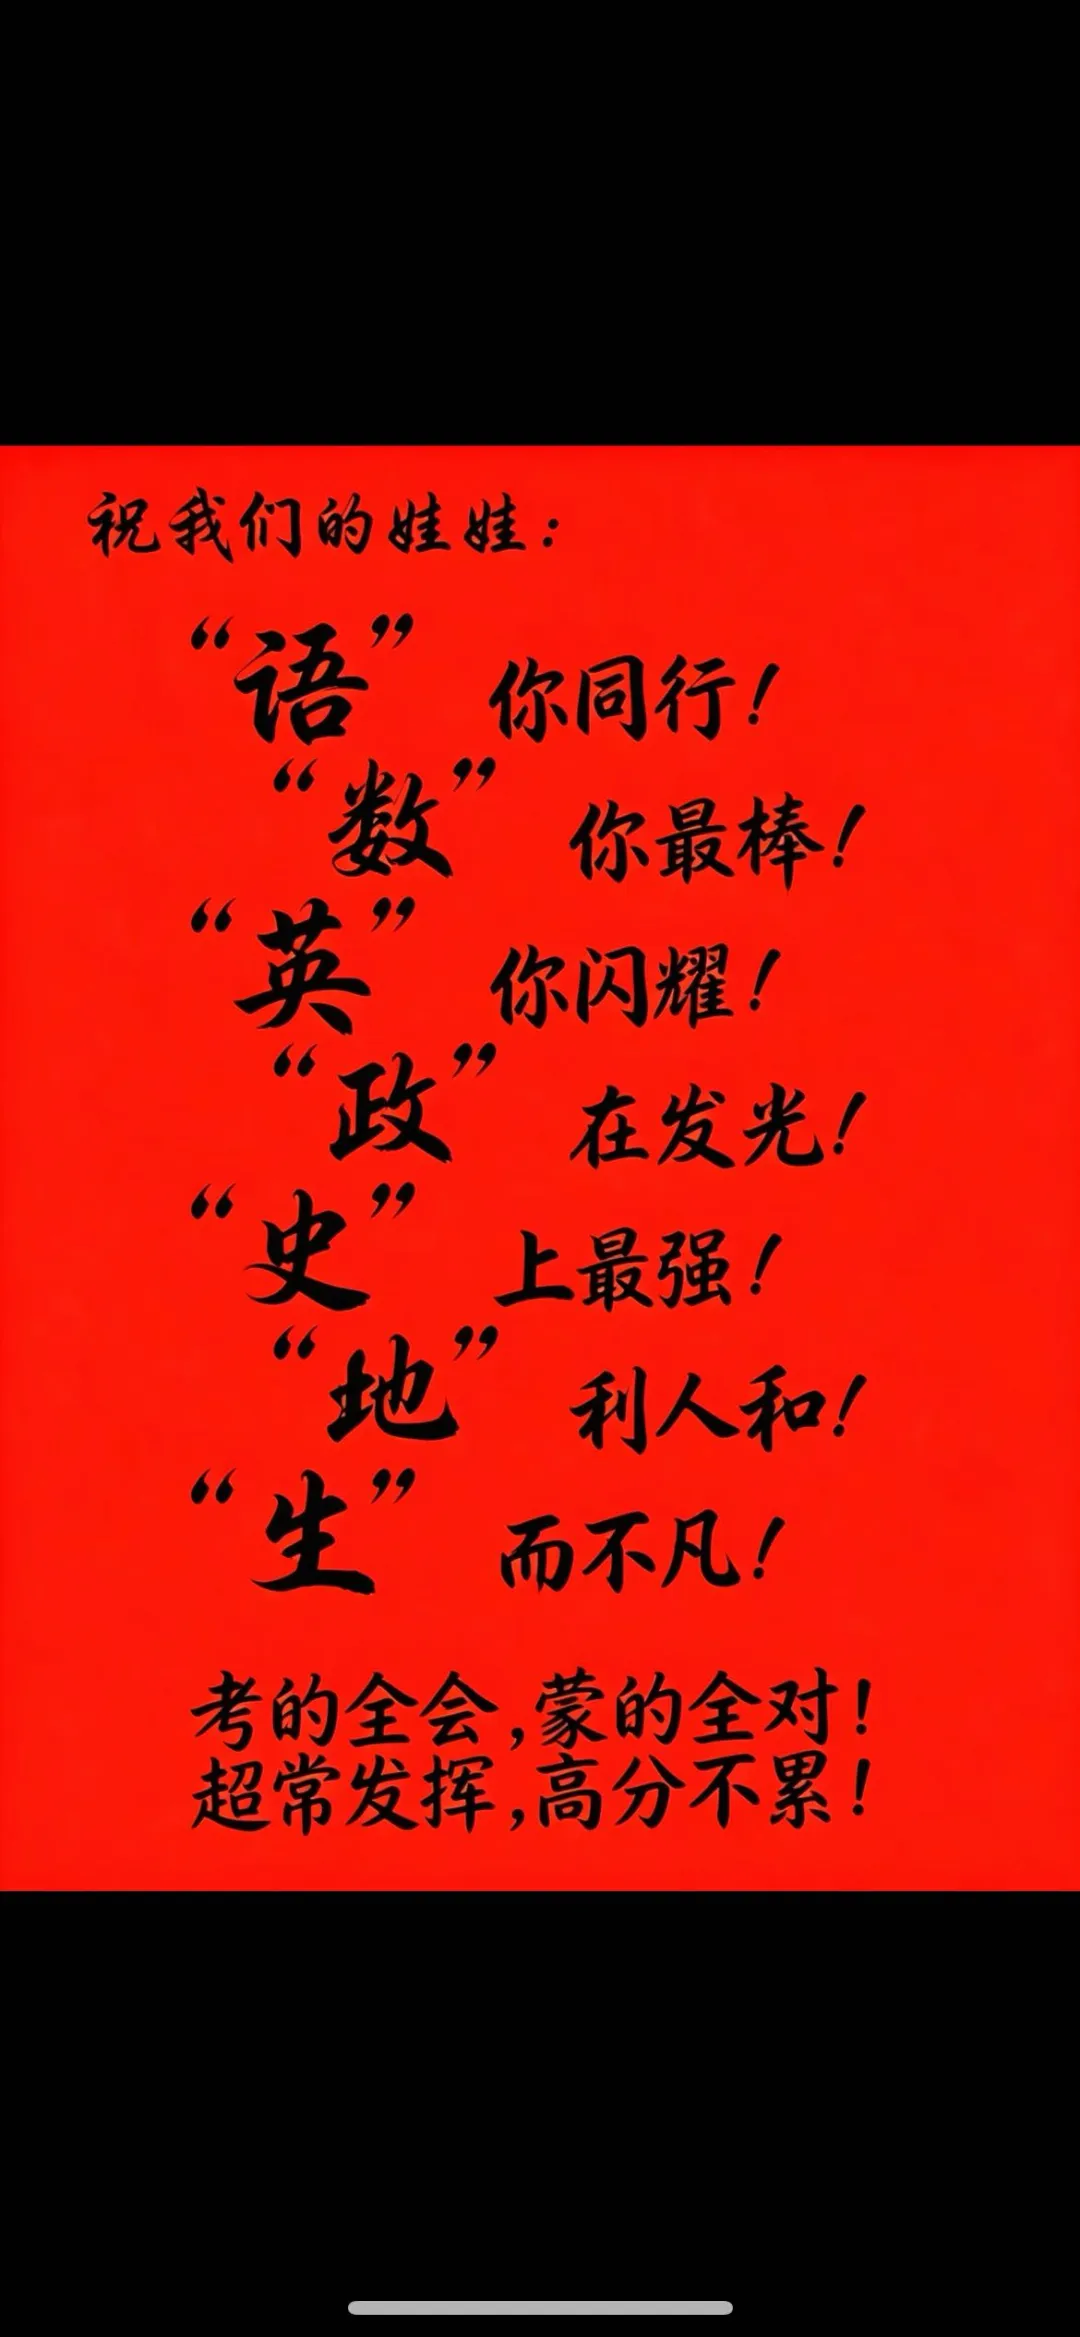 祝我们的娃娃：
“语”你同行！
“数”你最棒！
“英”你闪耀！
“政”在发光！
“史”上最强！
“地”利人和！
“生”而不凡！
考的全会，蒙的全对！
超常发挥，高分不累！